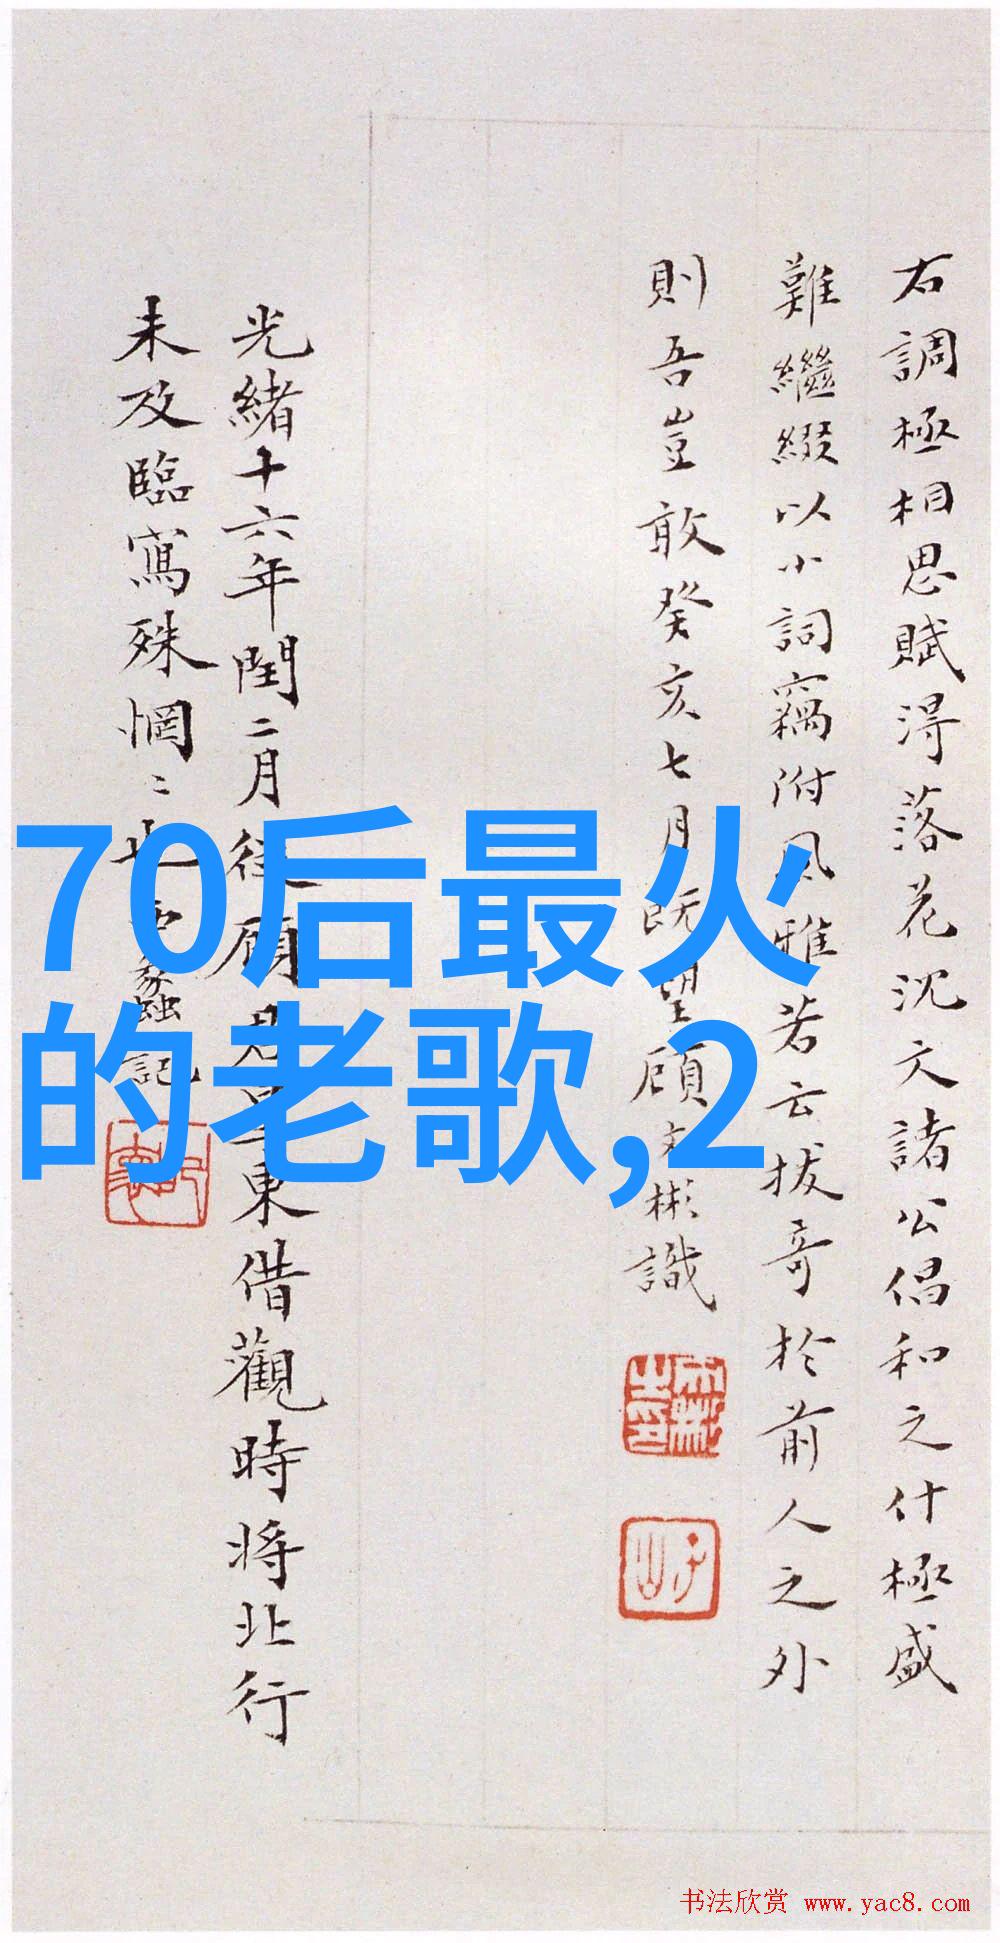 右調極相思賦得落花沈文諸公倡和之什極盛
難繼綴以小詞竊附風雅若云拔奇於前人之外
則吾豈敢癸亥七月既望顧文彬識
光緒十六年閏二月從顧 東借觀時將北行
未及臨寫殊惘〻也 記
70后最火
的老歌,2
书法欣赏 www.yac8.com